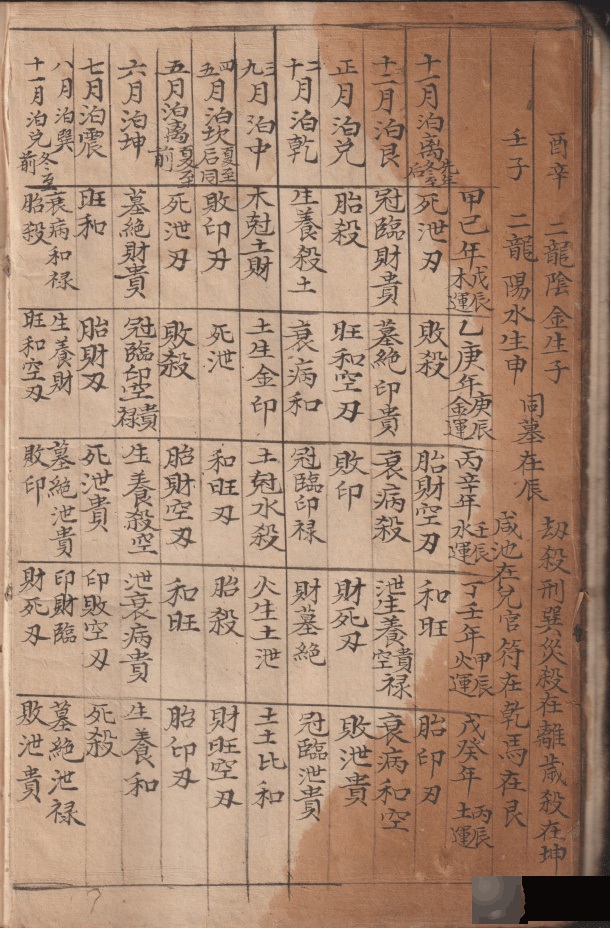 酉辛 二龍陰金生子 劫殺刑巽災殺在離歲殺在坤
壬子 二龍陽水生申 同墓在辰 咸池在兌官符在乾馬在艮
甲己年戊辰木運 乙庚年庚辰金運 丙辛年壬辰水運 丁壬年甲辰火運 戊癸年丙辰土運
十一月泊离冬至后先年 死泄刃 敗殺 胎財空刃 和旺 胎印刃
十二月泊艮 冠臨財貴 墓絕印貴 衰病殺 泄生養空貴祿 衰病和空
正月泊兌 胎殺 旺和空刃 敗印 財死刃 敗泄貴
二十月泊乾 生養殺土 衰病和 冠臨印禄 財墓絕 冠臨泄貴
三九月泊中 木尅土財 土生金印 土尅水殺 火生土泄 土土比和
四五月泊坎夏至后同 敗印刃 死泄 和旺刃 胎殺 財旺空刃
五月泊离夏至前 死泄刃 敗殺 胎財空刃 和旺 胎印刃
六月泊坤 墓絕財貴 冠臨印空貴禄 生養殺空 泄衰病貴 生養和
七月泊震 旺和 胎財刃 死泄貴 印敗空刃 死殺
八月泊巽 衰病和禄 生養財 墓絕泄貴 印財臨 墓絕泄禄
十一月泊兌冬至前 胎殺 旺和空刃 敗印 財死刃 敗泄貴